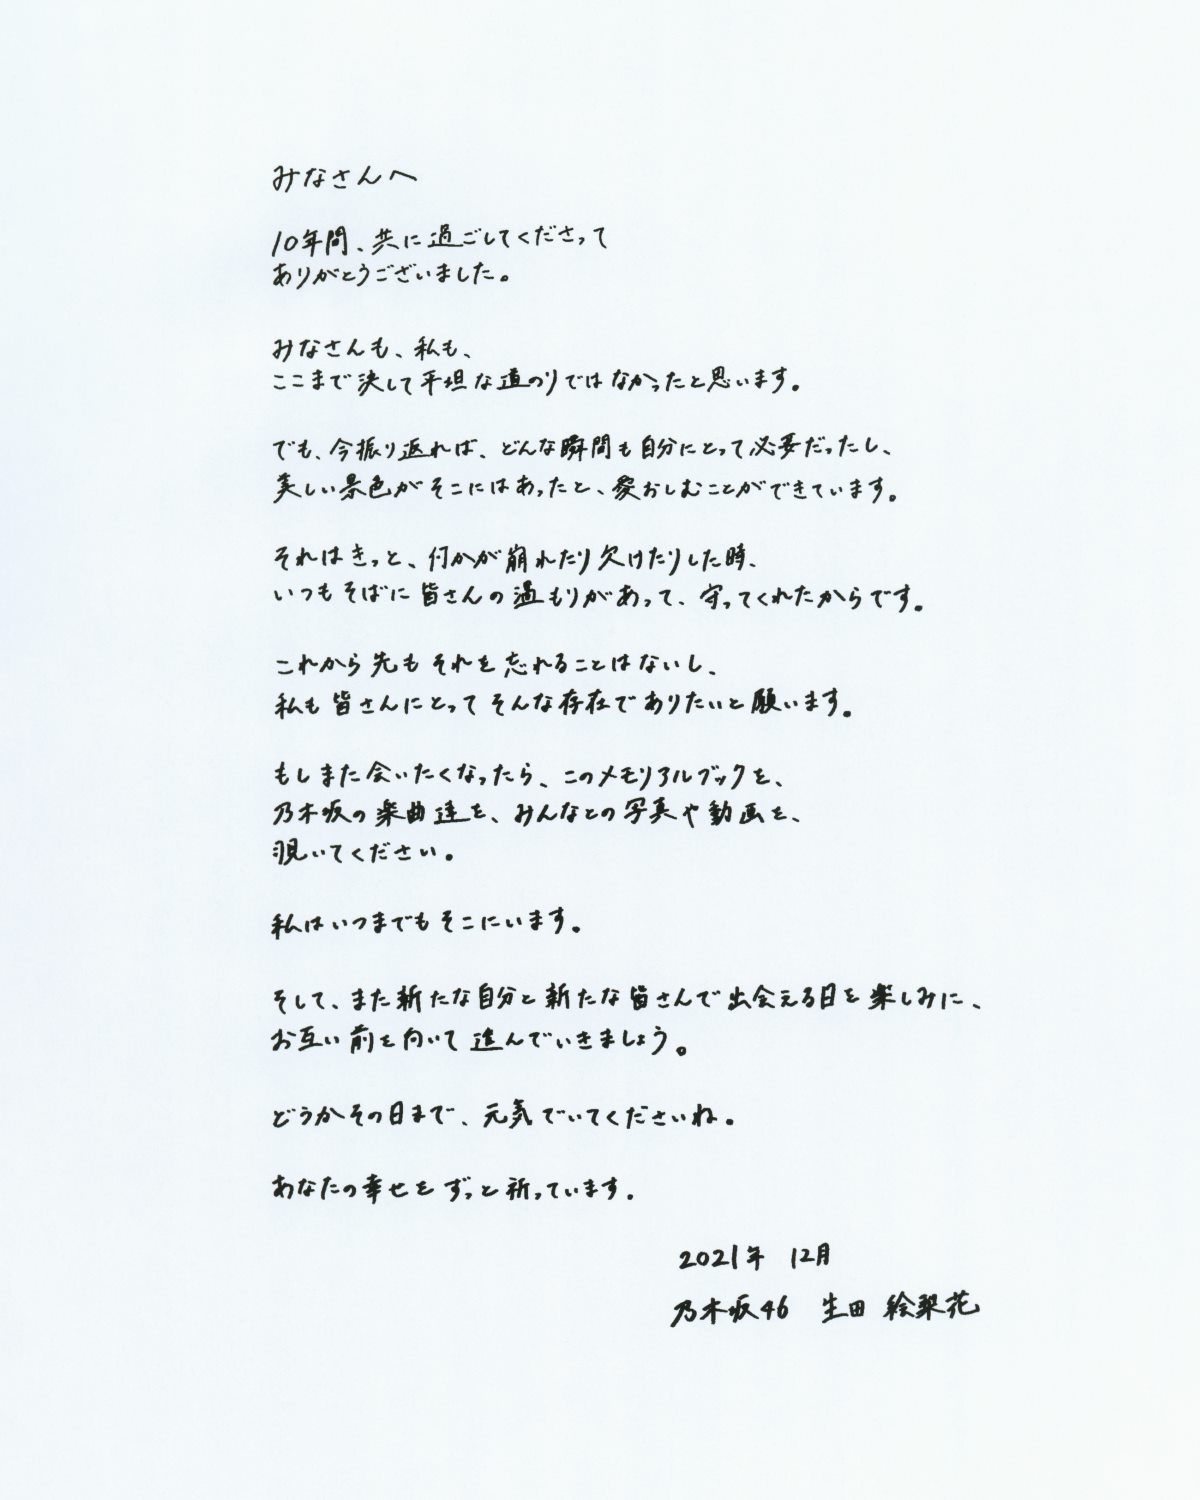 みなさんへ
10年間、共に過ごしてくださって
ありがとうございました。
みなさんも、私も、
ここまで決して平坦な道のりではなかったと思います。
でも、今振り返れば、どんな瞬間も自分にとって必要だったし、
美しい景色がそこにはあったと、愛おしむことができています。
それはきっと、何かが崩れたり欠けたりした時、
いつもそばに皆さんの温もりがあって、守ってくれたからです。
これから先もそれを忘れることはないし、
私も皆さんにとってそんな存在でありたいと願います。
もしまた会いたくなったら、このメモリアルブックを、
乃木坂の楽曲達を、みんなとの写真や動画を、
覗いてください。
私はいつまでもそこにいます。
そして、また新たな自分と新たな皆さんで出会える日を楽しみに、
お互い前を向いて進んでいきましょう。
どうかその日まで、元気でいてくださいね。
あなたの幸せをずっと祈っています。
2021年 12月
乃木坂46 生田 絵梨花